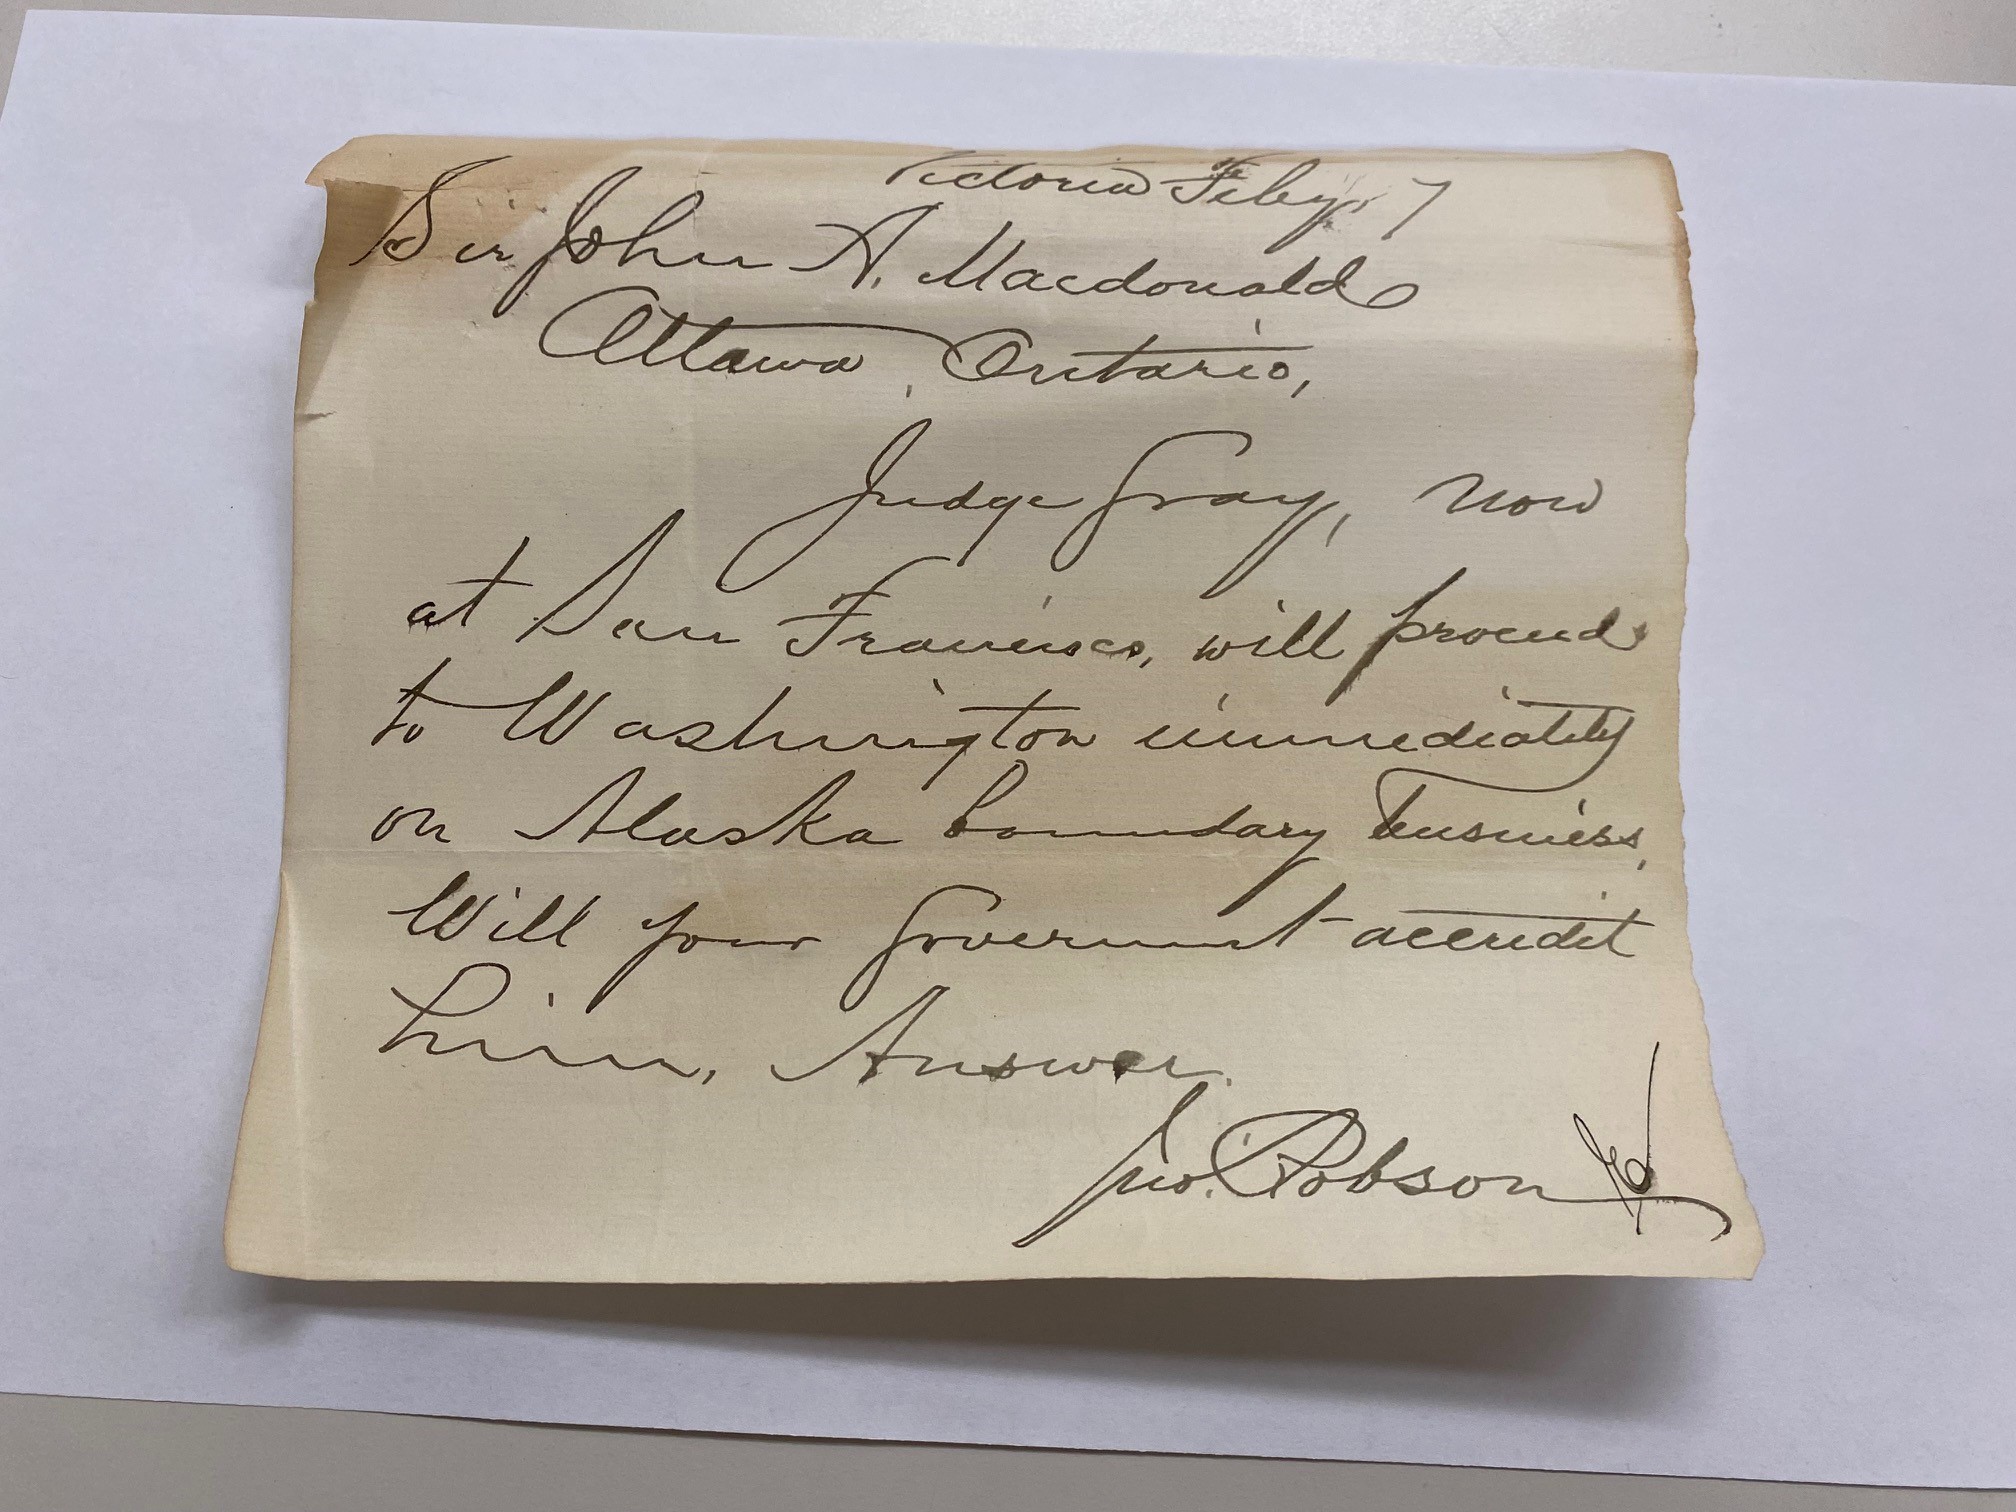 Victoria Feby. 7
Sir John A. Macdonald
Ottawa, Ontario,
Judge Gray, now
at San Francisco, will proceed
to Washington immediately
on Alaska boundary business,
Will your Government accredit
him, Answer.
Jno. Robson